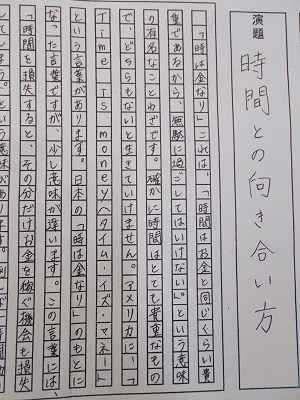 演題
時間との向き合い方
「時は金なり」これは、「時間はお金と同じくらい貴
重であるから、無駄に過ごしてはいけない。」という意味
の有名なことわざです。確かに時間はとても貴重なもの
で、どちらもないと生きていけません。アメリカに、「
Time is money(タイム・イズ・マネー)
という言葉があります。日本の「時は金なり」のもとに
なった言葉ですが、少し意味が違います。この言葉には、
「時間を損失すると、その分だけお金を稼ぐ機会も損失
してしまう。」という意味があります。